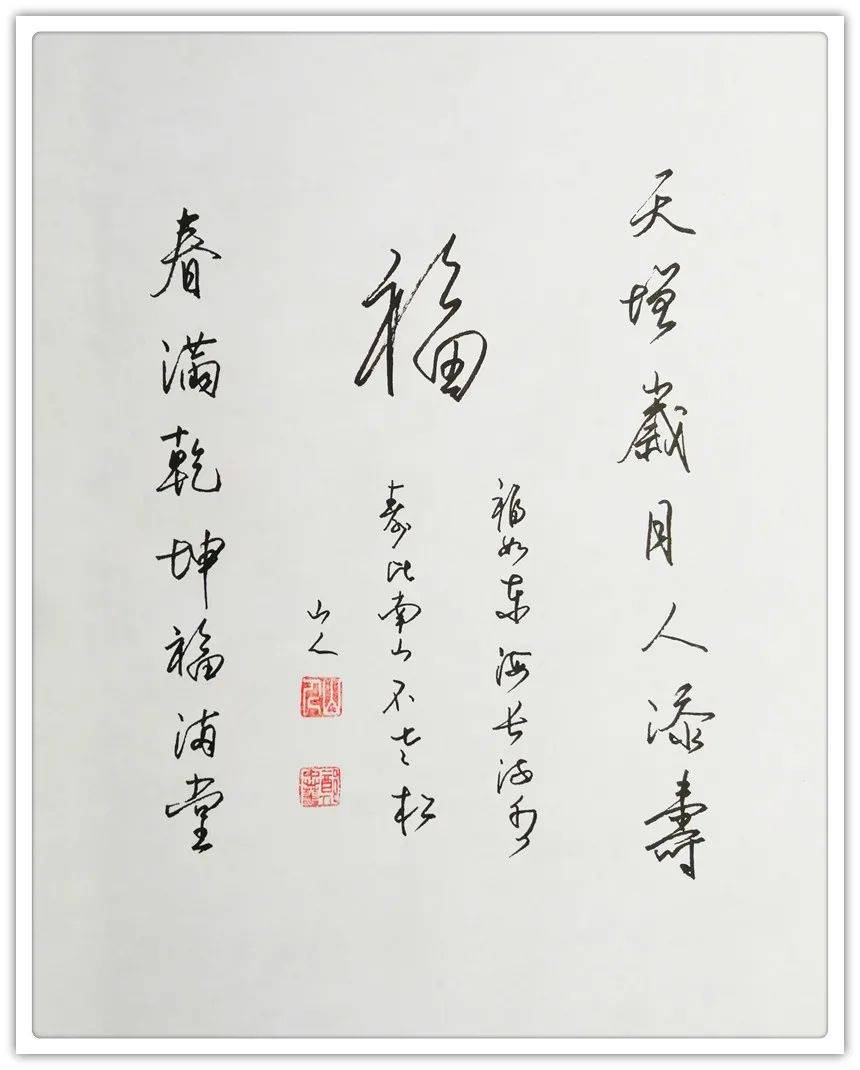 天增歲月人添壽
福
福如东海长流水
寿比南山不老松
山人
春滿乾坤福满堂